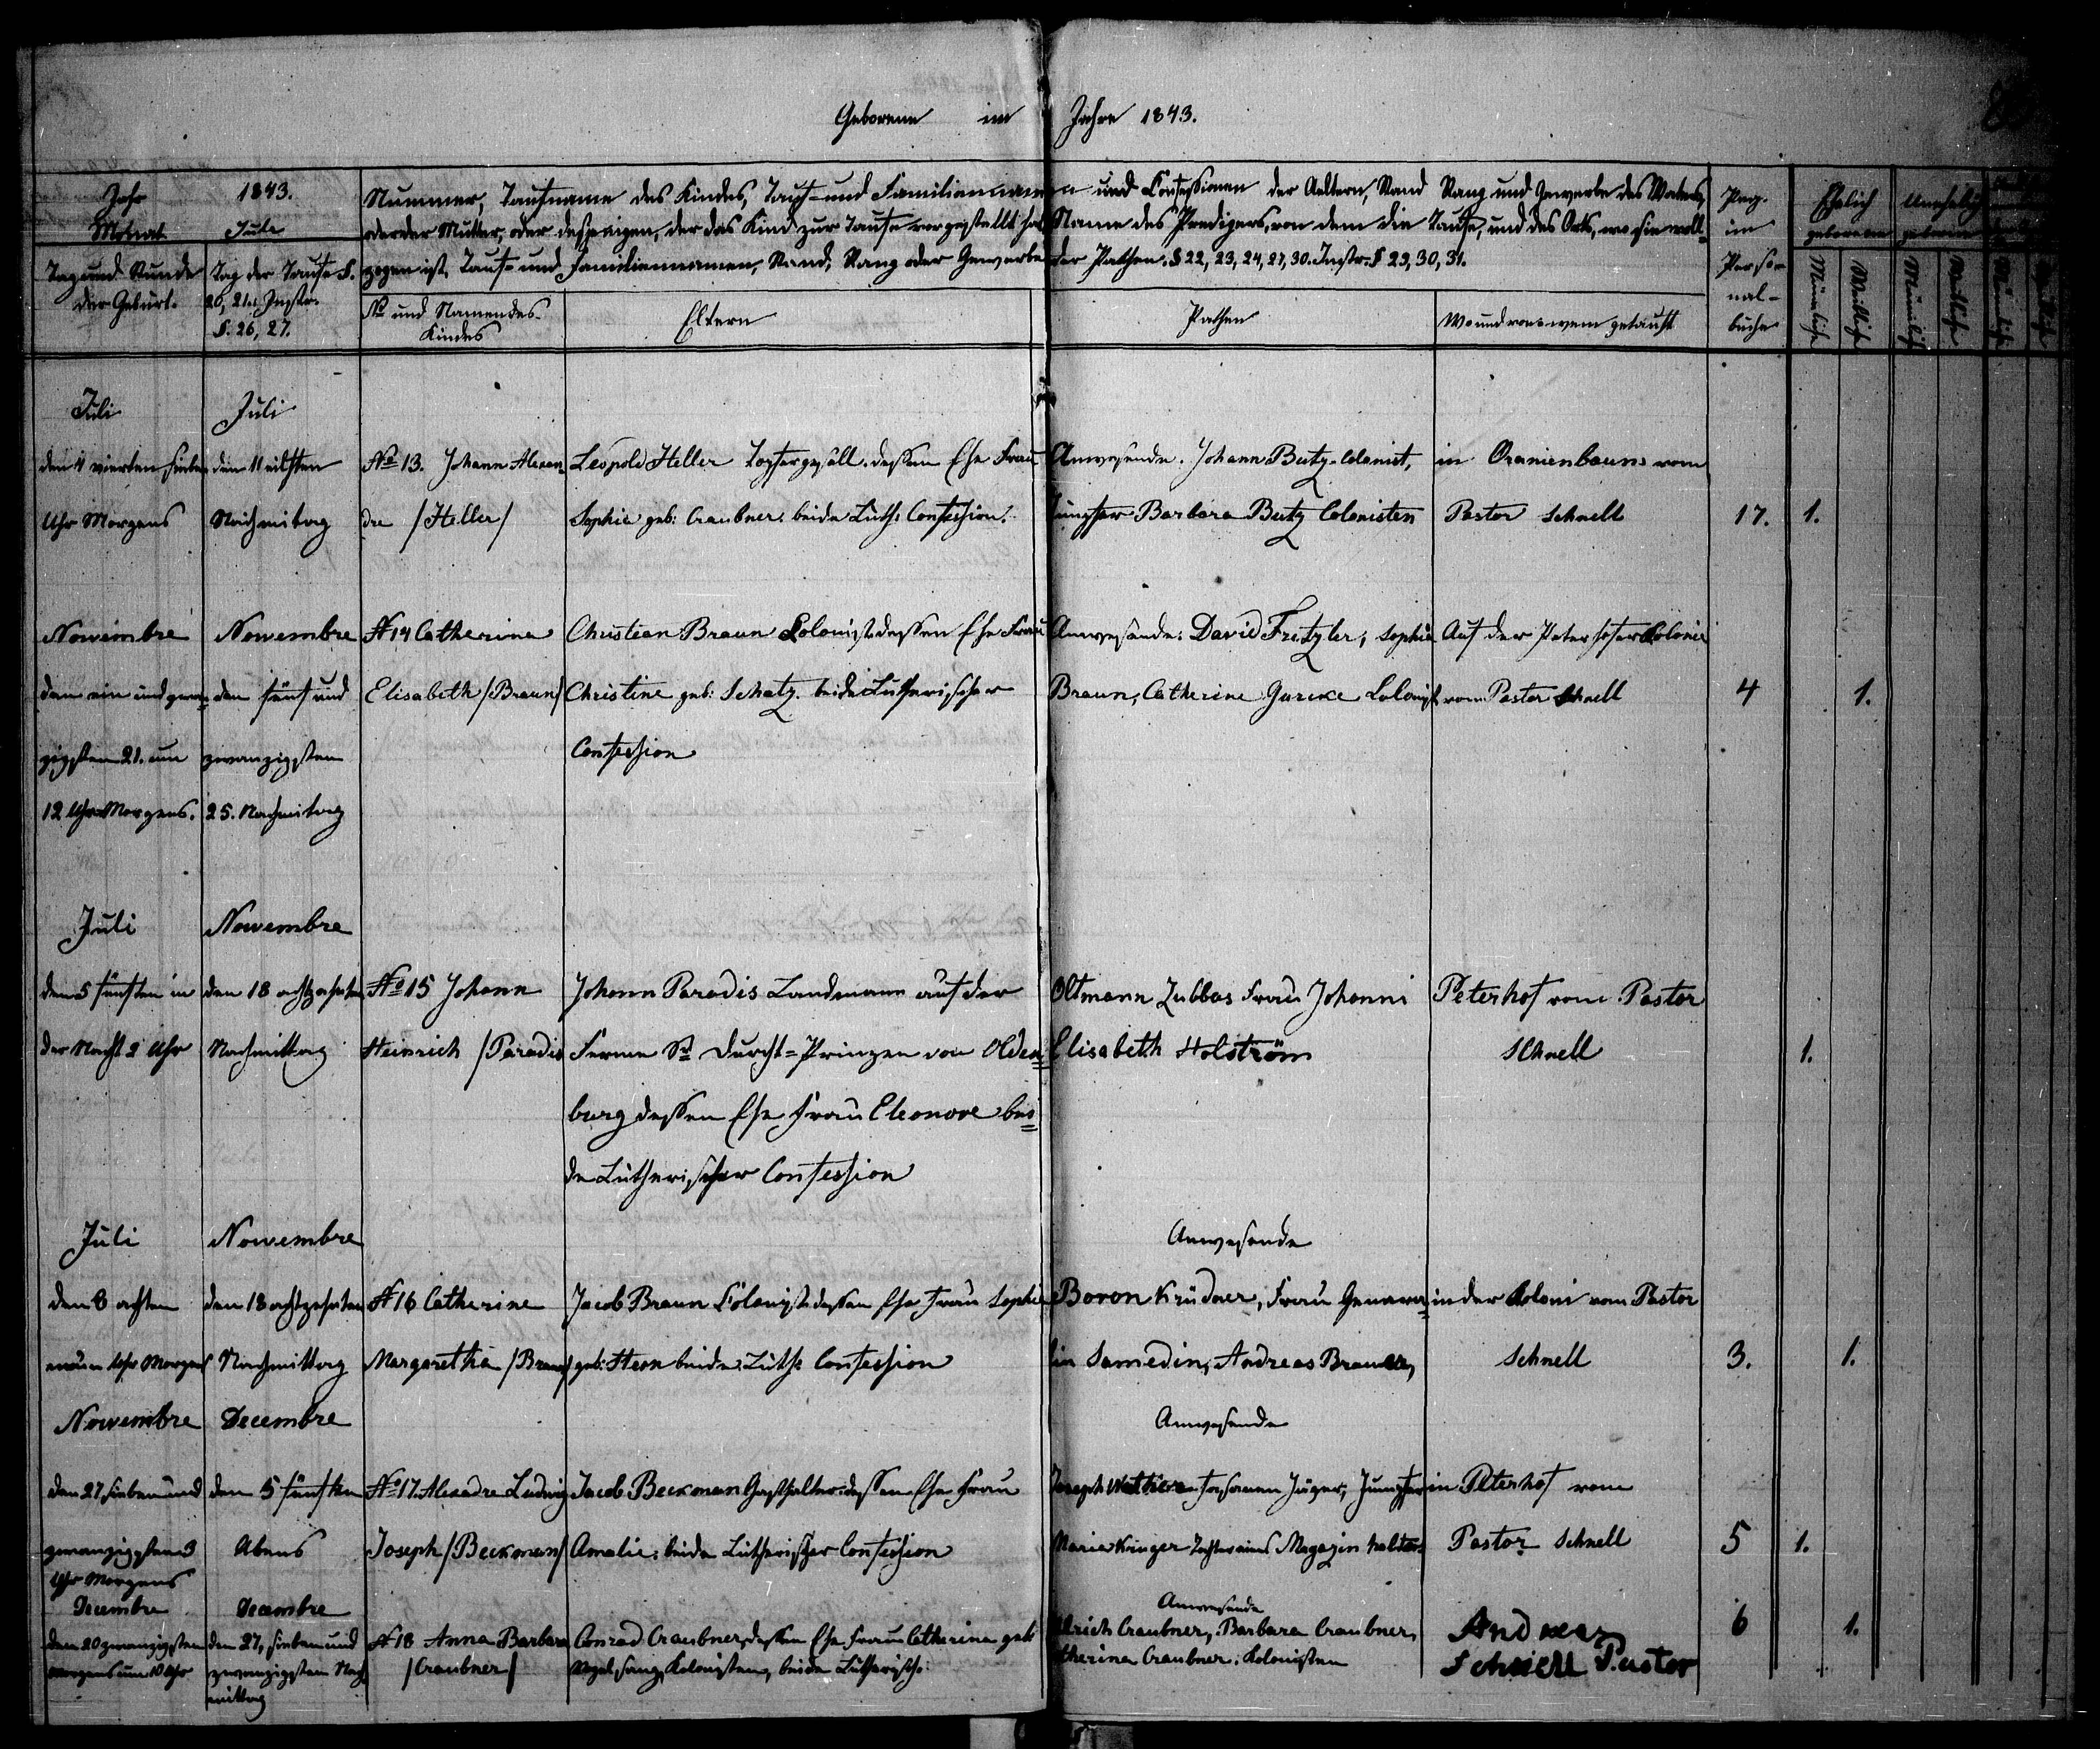 Geborene im Jahre 1843.
Jahr 1843.
Monat Jule
Tag und Stunde der Geburt.
Tag der Taufe §. 20, 21. Instr. §. 26, 27.
Nummer, Taufname des Kindes, Tauf- und Familiennamen und Confessionen der Aeltern, Stand Rang und Gewerbe des Vaters,
oder der Mutter, oder desjenigen, der das Kind zur Taufe vorgestellt hat Name des Predigers, von dem die Taufe, und des Orts, wo sie voll-
zogen ist, Tauf- und Familiennamen, Stand, Rang oder Gewerbe der Pathen. § 22, 23, 24, 27, 30. Instr. § 29, 30, 31.
No und Namen des Kindes
Eltern
Pathen
Wo und von wem getauft
Pag. im Perso-nal-buche
Ehelich geborene
Unehelich geborene
Männlich
Weiblich
Männlich
Weiblich
Juli Juli
den 4 vierten sieben den 11 eilften No 13. Johann Alexan Leopold Heller Töpfergesell. dessen Ehe Frau Anwesende. Johann Butz Colonist, in Oranienbaum vom
Uhr Morgens Nachmitag dre /Heller/ Sophie geb: Craubner. beide Luth: Confession. Jungfer Barbara Butz Colonisten Pastor Schnell 17. 1.
Nowembre Nowembre No 14 Catherine Christian Braun Colonist dessen Ehe Frau Anwesende: David Fritzler, Sophie Auf der Peterhofer Colonie
den ein und zwan- den fünf und Elisabeth /Braun/ Christine geb: Schatz. beide Lutherischer Braun, Catherine Colonist vom Pastor Schnell 4 1.
zigsten 21. um zwanzigsten Confession
12 Uhr Morgens. 25. Nachmitag
Juli Nowembre
den 5 fünften in den 18 achtzehnten No 15 Johann Johann Paradis Landmann auf der Oltmann Frau Johanni Peterhof vom Pastor
der Nacht 2 Uhr Nachmittag Heinrich /Paradis Ferme Sr Durcht= Prinzen von Olden= Elisabeth Holström Schnell 1.
burg dessen Ehe Frau Eleonore bei=
de Lutherischer Confession
Juli Nowembre Anwesende
den 8 achten den 18 achtzehnten No 16 Catherine Jacob Braun Colonist dessen Ehe Frau Sophie Boron Krüdner, Frau in der Coloni vom Pastor
neun Uhr Morgens Nachmittag Margaretha /Braun/ geb: Stern beide: Luth: Confession Samedin, Andreas Schnell 3. 1.
Nowembre Decembre Anwesende
den 27 sieben und den 5 fünften No 17. Alexadre Ludwig Jacob Beckman Gasthalter dessen Ehe Frau Joseph Fasanen Jäger, Jungfer in Peterhof vom
zwanzigsten 3 Abens Joseph /Beckman/ Amalie: beide Lutherischer Confession Maria Krüger Tochter eines Magazin halter Pastor Schnell 5 1.
Uhr Morgens
Decembre Decembre Anwesende
den 20 zwanzigsten den 27, sieben und No 18 Anna Barbara Conrad Craubner, dessen Ehe Frau Catherina geb: Ulrich Craubner, Barbara Craubner, Andreas 6 1.
Morgens um 10 Uhr zwanzigsten Nach /Craubner/ Vogelsang, Kolonisten, beide Lutherisch: Catherina Craubner: Kolonisten Schnell Pastor
mittag